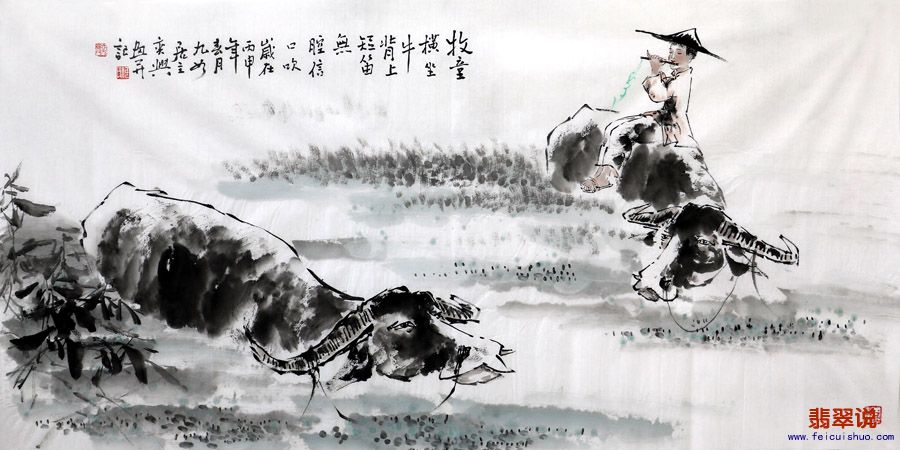 牧童
横坐
牛
背上
短笛
無
腔信
口吹
歲在
丙申
年
春月
九如
居主
翡翠说
www.feicuishuo.com